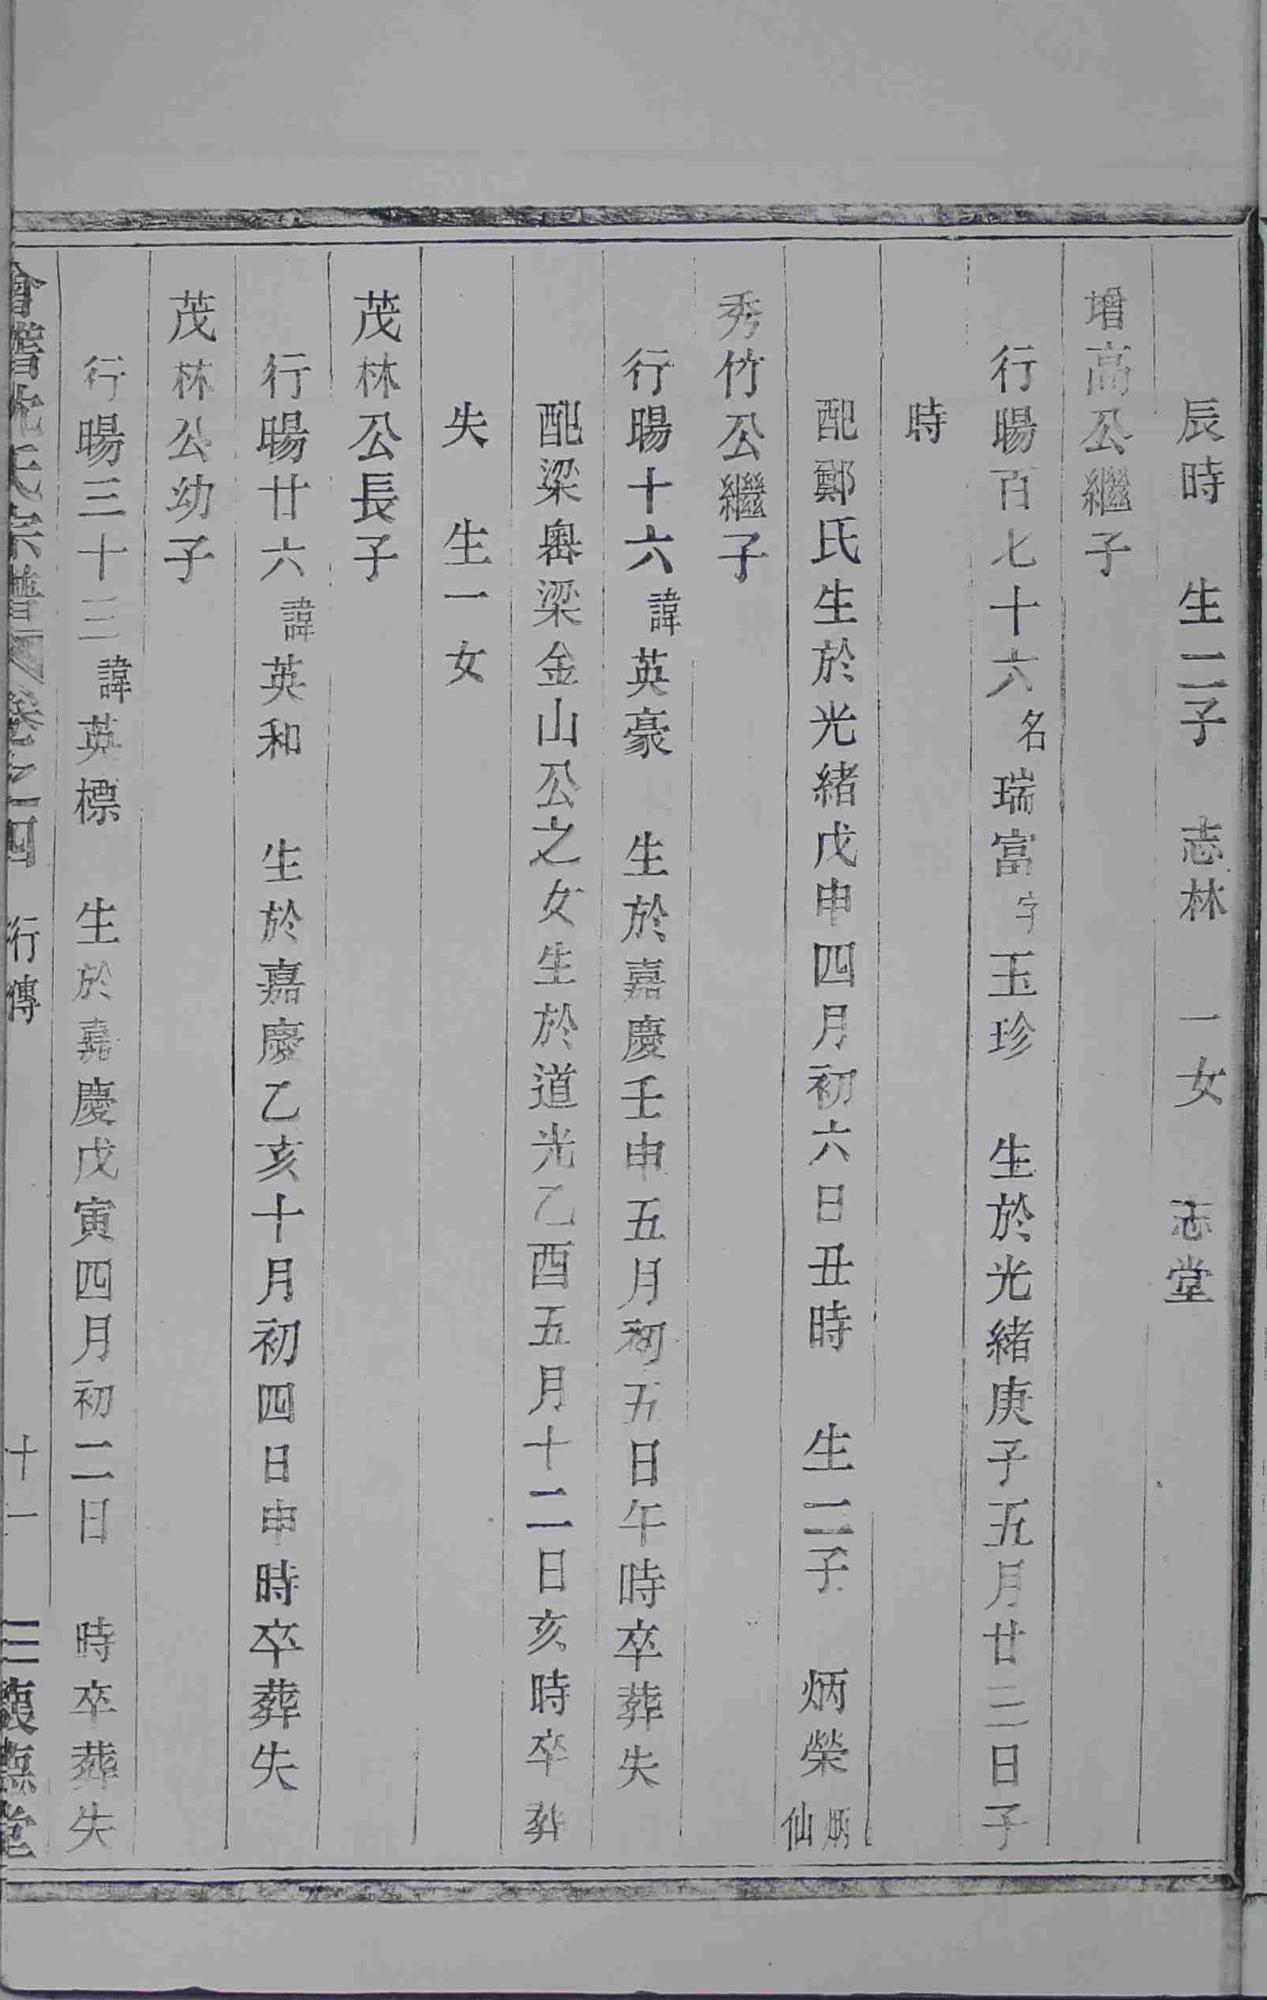 辰時　生二子　志林　一女　志堂
增高公繼子
行暘百七十六名瑞富字玉珍　生於光緒庚子五月廿二日子
時
配鄭氏生於光緒戊申四月初六日丑時　生二子　炳榮　炳仙
秀竹公繼子
行暘十六諱英豪　生於嘉慶壬申五月初五日午時卒葬失
配梁嶴梁金山公之女生於道光乙酉五月十二日亥時卒葬
失　生一女
茂林公長子
行暘廿六諱英和　生於嘉慶乙亥十月初四日申時卒葬失
茂林公幼子
行暘三十三諱英標　生於嘉慶戊寅四月初二日　時卒葬失
會稽沈氏宗譜　卷之四　行傳　十一　三馥堂